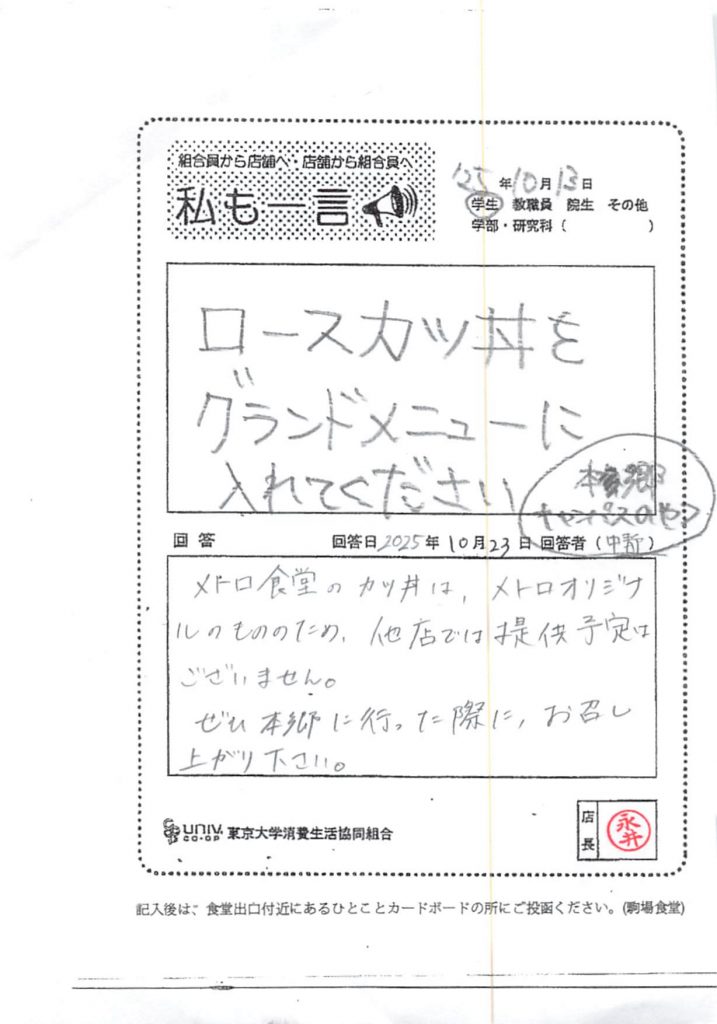 組合員から店舗へ・店舗から組合員へ
私も一言
'25年10月13日
学生 教職員 院生 その他
学部・研究科（ ）
ロースカツ丼を
グランドメニューに
入れてください
本郷
キャンパスのやつ
回答 回答日2025年10月23日 回答者（中新）
メトロ食堂のカツ丼は、メトロオリジナ
ルのもののため、他店では提供予定は
ございません。
ぜひ本郷に行った際に、お召し
上がり下さい。
UNIV.
CO-OP
東京大学消費生活協同組合
店長
永井
記入後は、食堂出口付近にあるひとことカードボードの所にご投函ください。(駒場食堂)